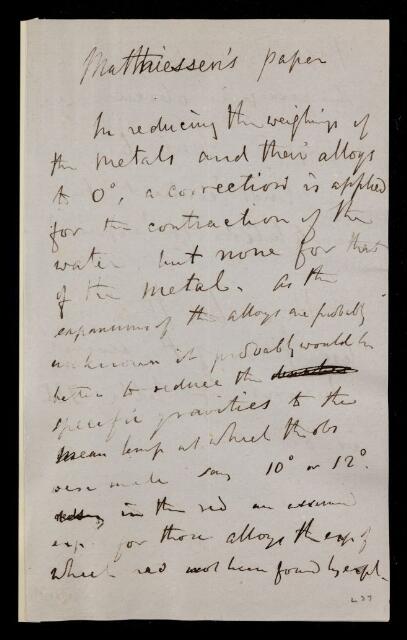 Matthiessen's paper
In reducing the weighings of
the metals and their alloys
to 0°, a correction is applied
for the contraction of the
water but none for that
of the metal. As the
expansions of the alloys are probably
unknown it probably would be
better to reduce the
specific gravities to the
mean temp at which the obs
were made say 10° or 12°.
in the red an assumed
exp. for those alloys the exp of
which had not been found by expt.